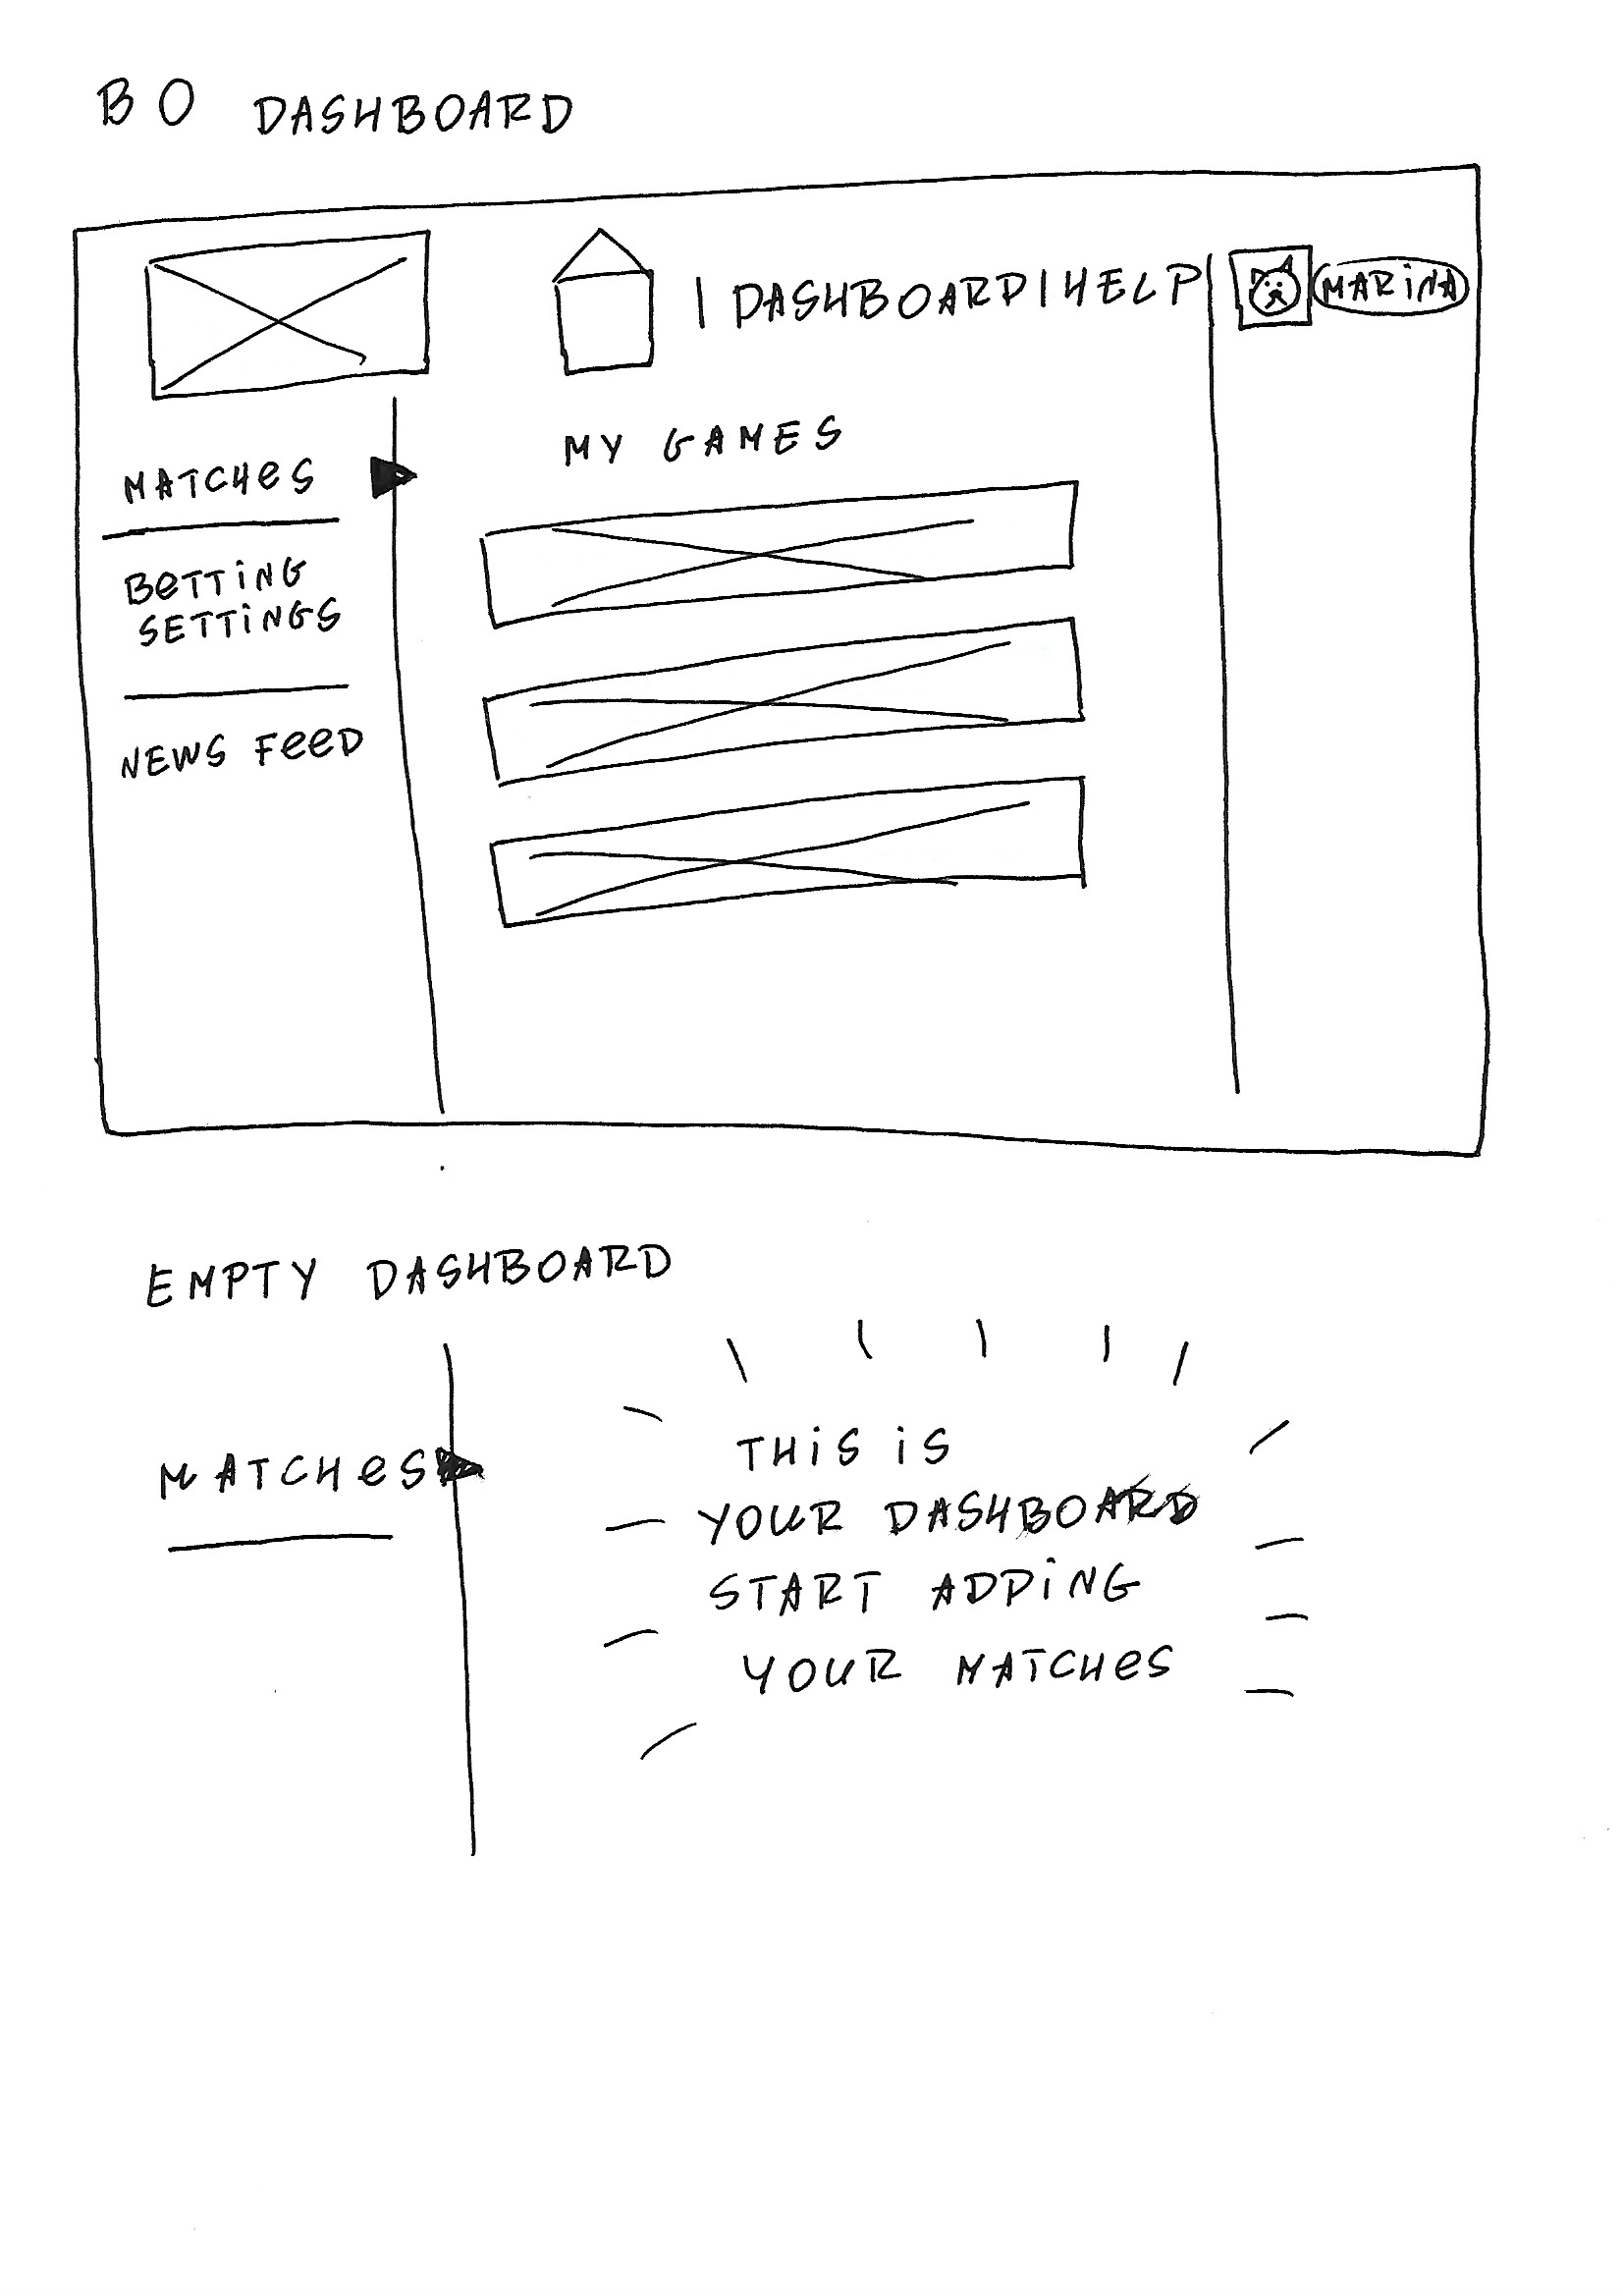 BO DASHBOARD
| DASHBOARD | HELP
MARiNA
MY GAMES
MATCHeS
BeTTiNG
SETTiNGS
NEWS FeeD
EMPTY DASHBOARD
MATCHeS
THiS iS
YOUR DASHBOARD
START ADDiNG
YOUR MATCHeS